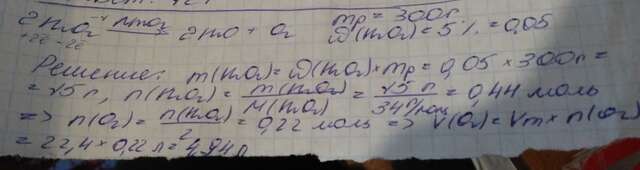 2H₂O₂⁻¹ MnO₂ = 2H₂O + O₂ mp = 300г.
+2ē -2ē ω(H₂O₂) = 5% = 0,05
Решение: m(H₂O₂) = ω(H₂O₂) × mp = 0,05 × 300г =
= 15 г, n(H₂O₂) = m(H₂O₂)/M(H₂O₂) = 15 г/34 г/моль = 0,44 моль
=> n(O₂) = n(H₂O₂)/2 = 0,22 моль => V(O₂) = Vm × n(O₂)
= 22,4 × 0,22 л = 4,94 л